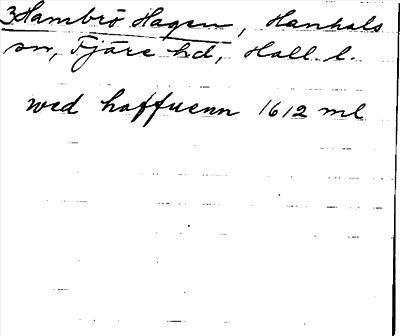 3 Hambrö Hagen, Hanhals
sn, Fjäre hd, Hall. l.
wed haffuenn 1612 ml